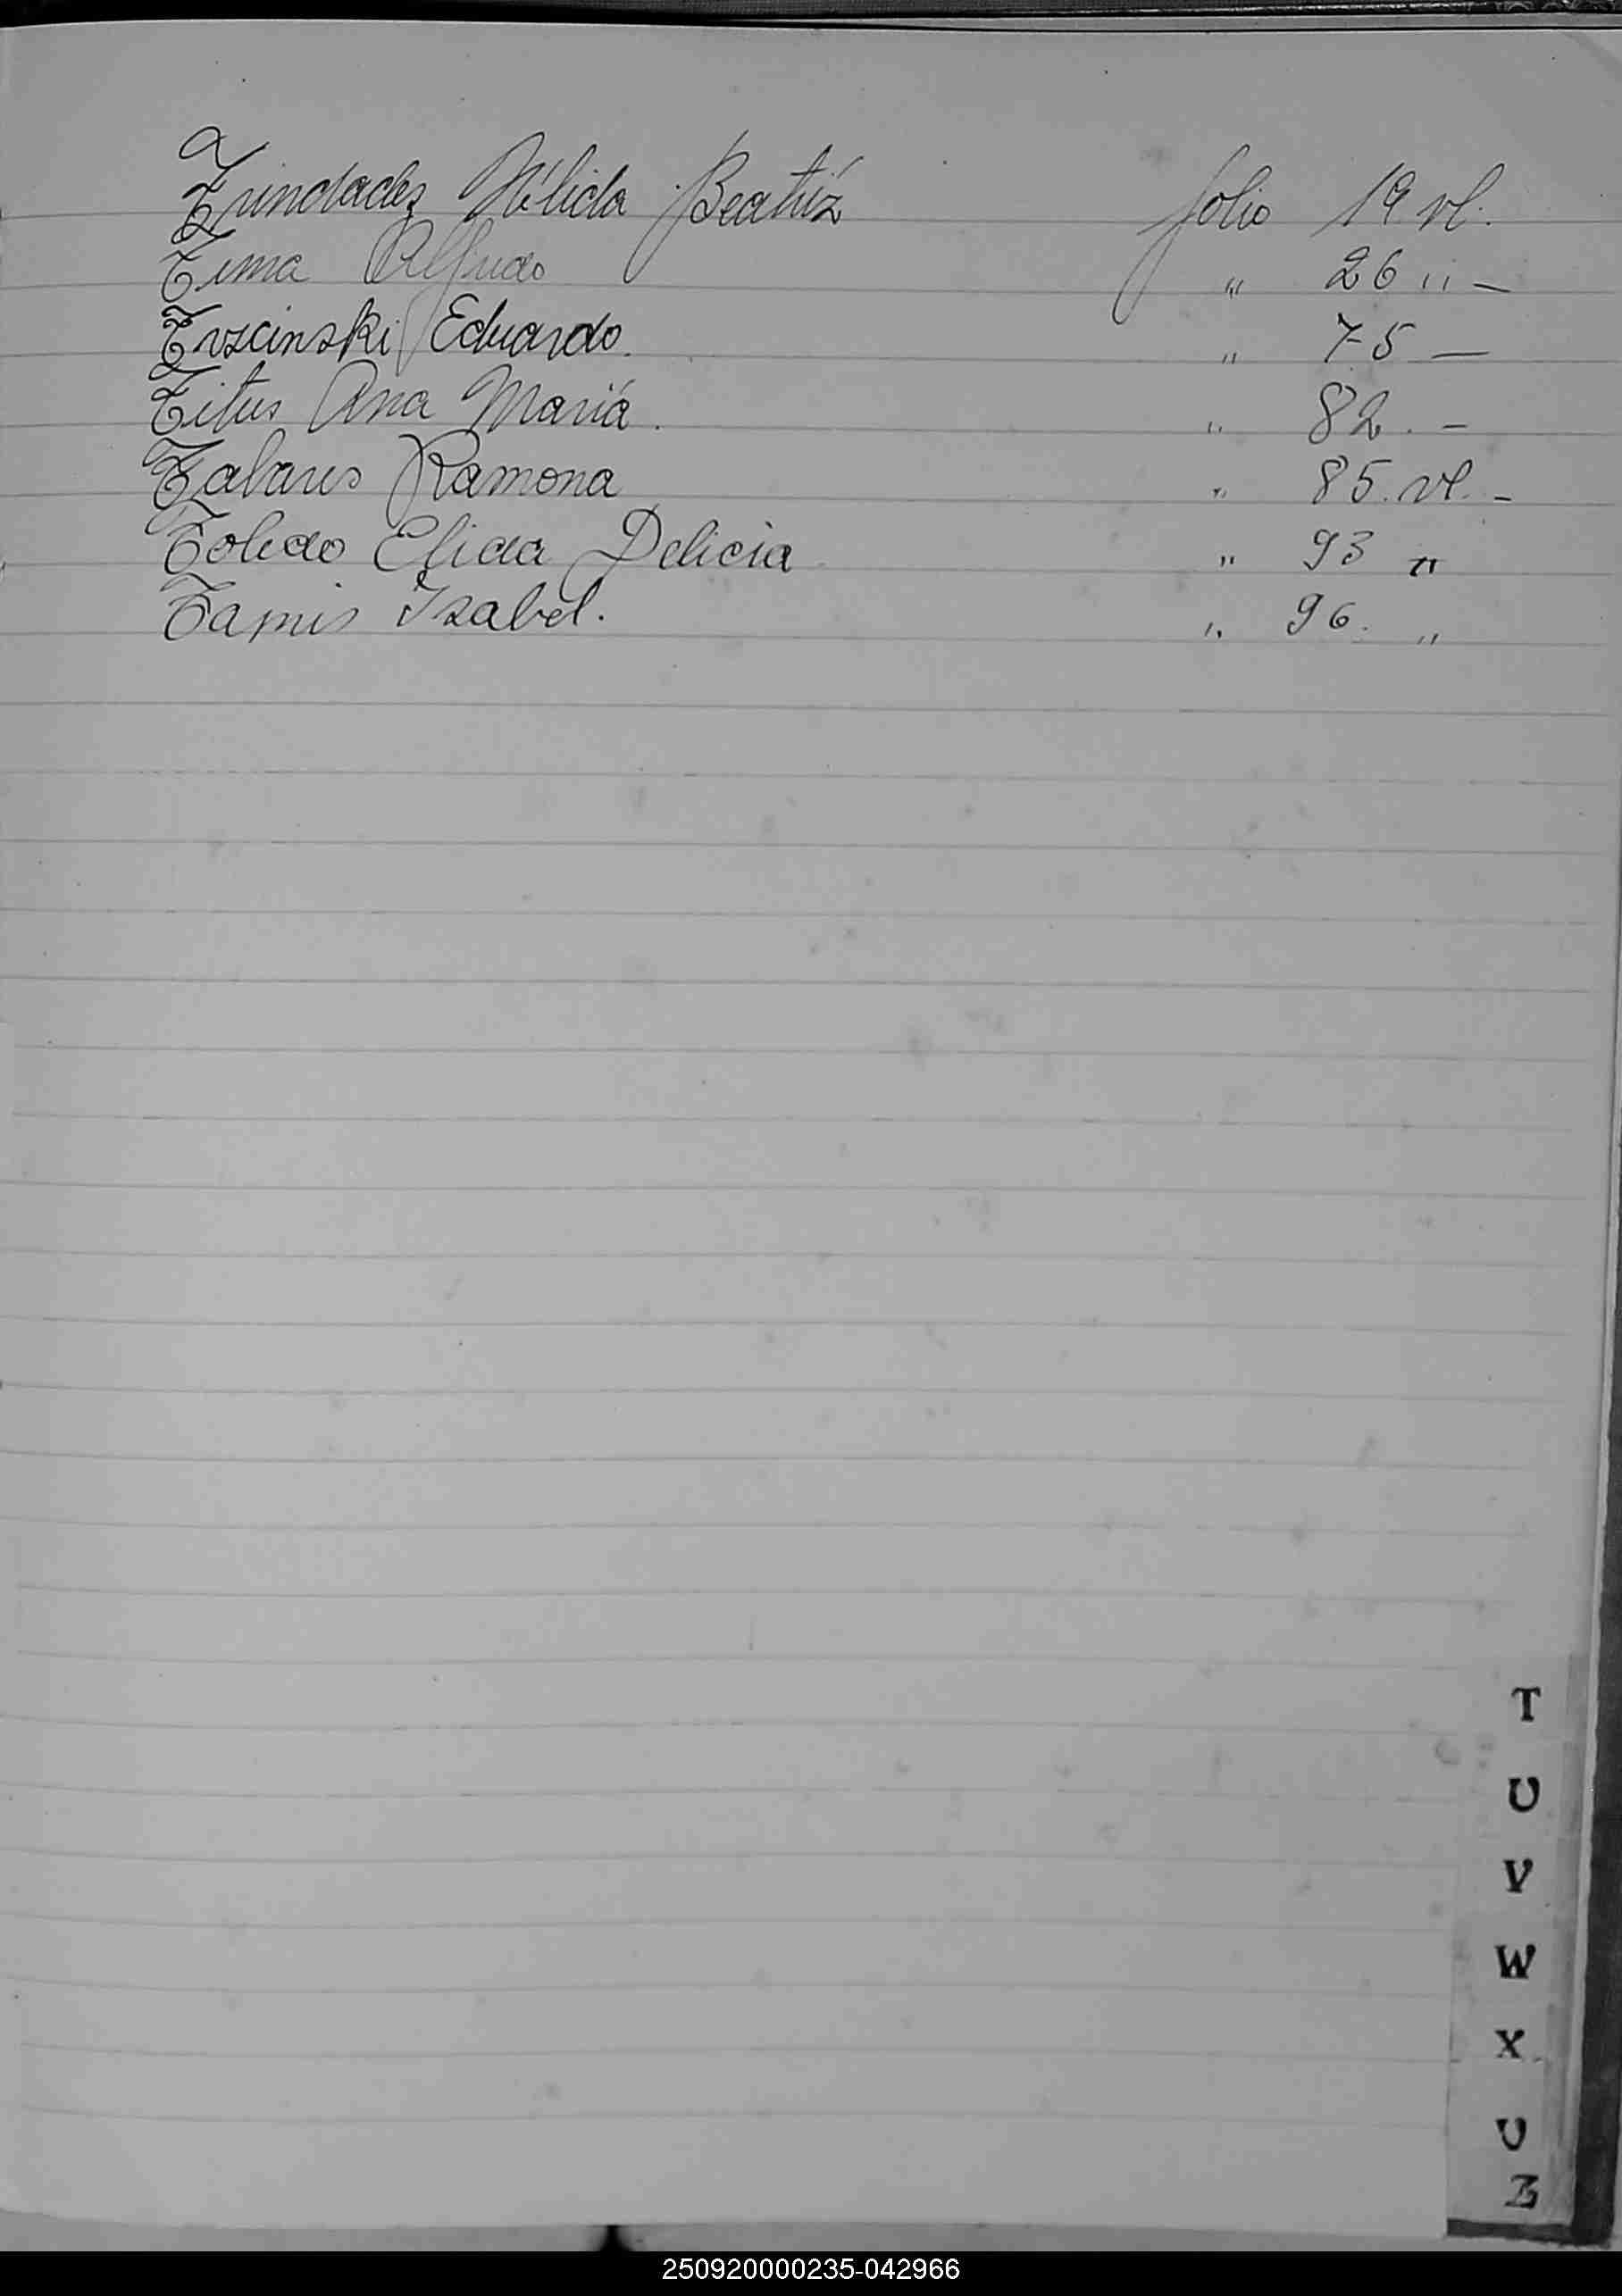 Trindadez Nélida Beatriz folio 19 vl.
Tima Alfredo " 26 " -
Trzcinski Eduardo. " 75 -
Titus Ana María. " 82. -
Tabares Ramona " 85. vl. -
Toledo Elida Delicia " 93 "
Tamis Isabel. " 96. "
T
U
V
W
X
U
Z
250920000235-042966